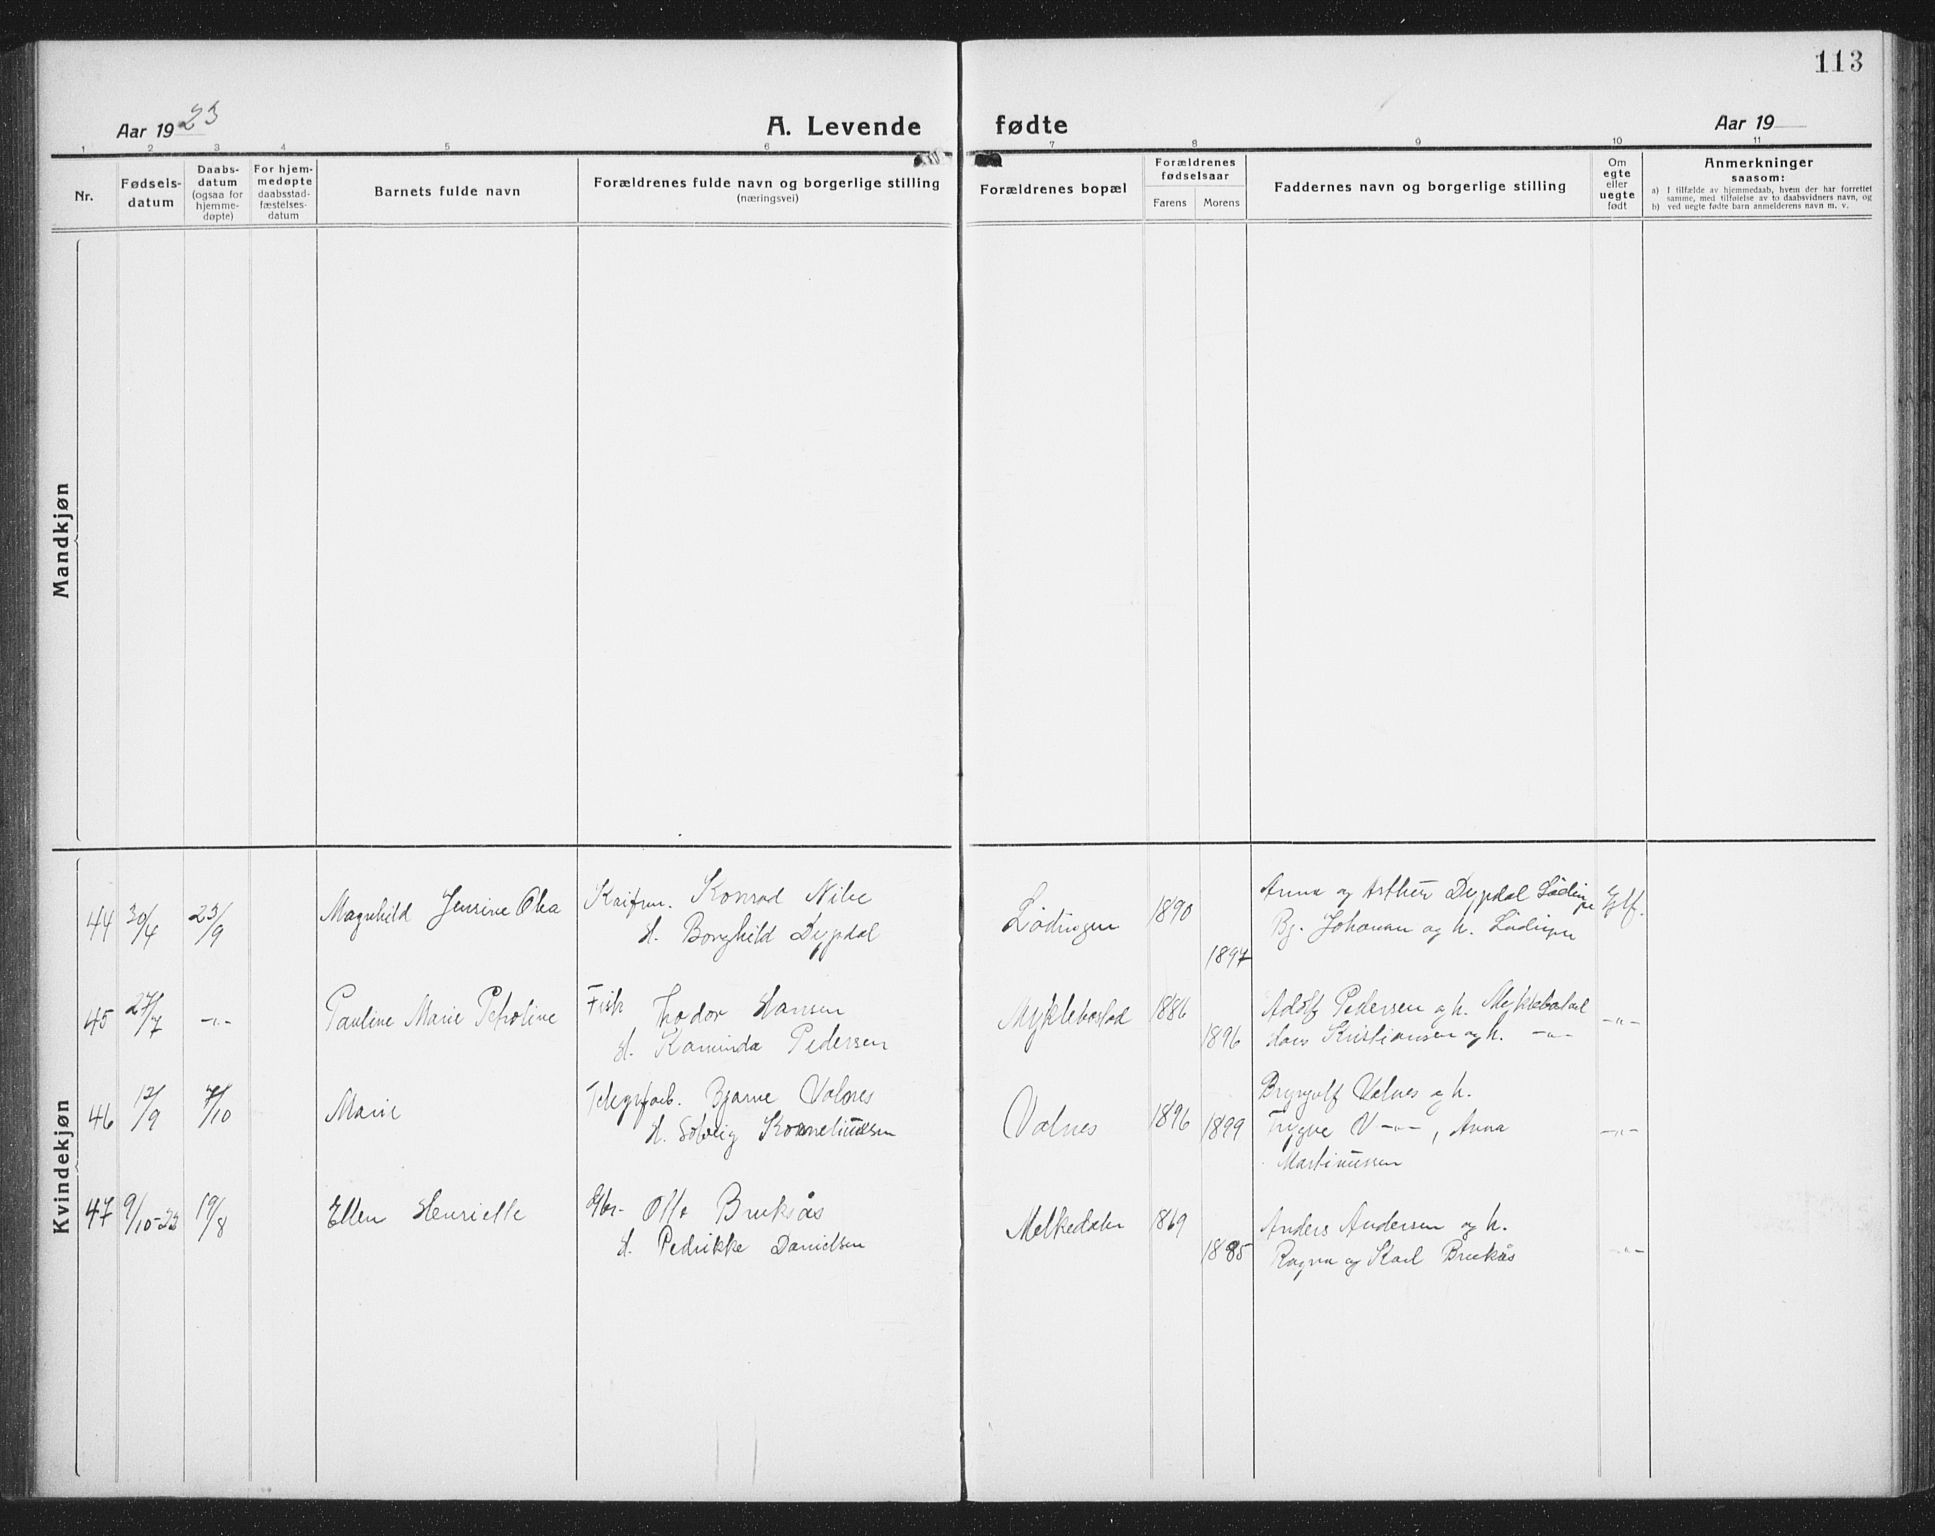 113
Aar 1923
A. Levende fødte
Aar 19
1 2 3 4 5 6 7 8 9 10 11
Nr.
Fødsels-
datum
Daabs-
datum
(ogsaa for
hjemme-
døpte)
For hjem-
medøpte
daabsstad-
fæstelses-
datum
Barnets fulde navn
Forældrenes fulde navn og borgerlige stilling
(næringsvei)
Forældrenes bopæl
Forældrenes
fødselsaar
Farens Morens
Faddernes navn og borgerlige stilling
Om
egte
eller
uegte
født
Anmerkninger
saasom:
a) I tilfælde av hjemmedaab, hvem der har forrettet
samme, med tilføielse av to daabsvidners navn, og
b) ved uegte fødte barn anmelderens navn m. v.
Mandkjøn
Kvindekjøn
44 30/4 23/9 Magnhild Jensine Olea
Konrad Nilse
H. Borghild Dypdal
Lødingen 1890
1897
Anna og Arthur Dypdal Lødingen
Bj. Johansen og h. Lødingen
Egtf.
45 27/7 -"- Pauline Marie Petroline
Fisk Thodor Hansen
H. Kaminda Pedersen
Myklebostad 1886
1896
Adolf Pedersen og h. Myklebostad
Hans Kristiansen og h. -"-
-"-
46 12/9 7/10 Marie
Telegrfarb. Bjarne Valnes
H. Solveig Korneliussen
Valnes 1896 1899
Brynjulf Valnes og h.
Trygve V -"-, Anna
Martinussen
-"-
47 9/10-23 19/8 Ellen Henriette
Gbr. Otto Bruksås
H. Pedrikke Danielsen
Melkedalen 1869
1885
Anders Andersen og h.
Ragna og Karl Bruksås
-"-